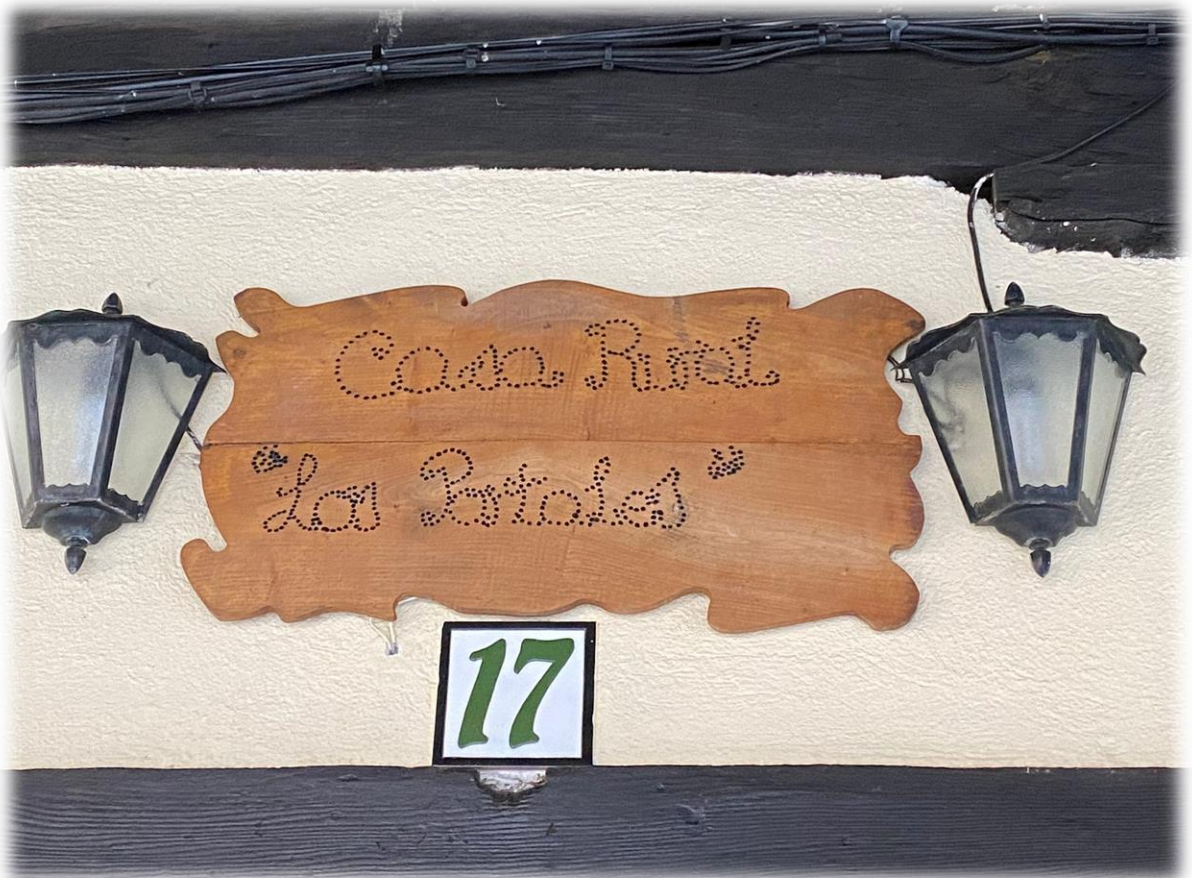 Casa Rural
"Los Portales"
17